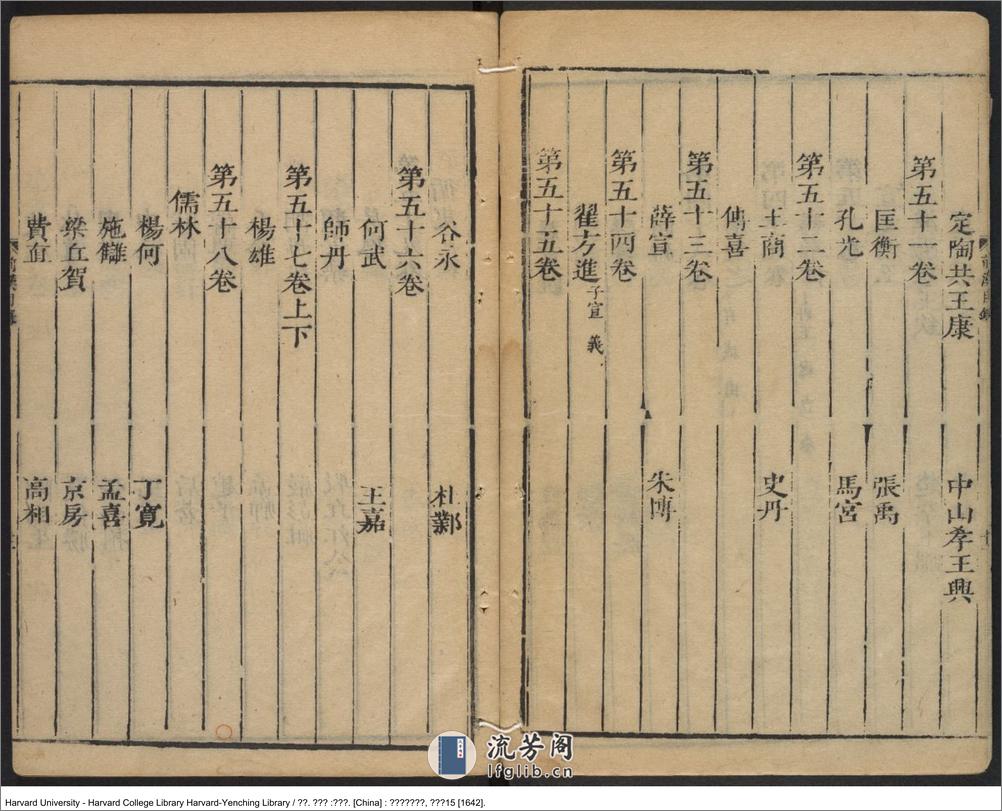 定陶共王康 中山孝王興
第五十一卷
匡衡 張禹
孔光 馬宮
第五十二卷
王商 史丹
傅喜
第五十三卷
薛宣 朱博
第五十四卷
翟方進 子宣 義
第五十五卷
谷永 杜鄴
第五十六卷
何武 王嘉
師丹
第五十七卷上下
楊雄
第五十八卷
儒林
楊何 丁寬
施讎 孟喜
梁丘賀 京房
費直 高相
流芳阁
lfglib.cn
Harvard University - Harvard College Library Harvard-Yenching Library / ??. ??? :???. [China] : ???????, ???15 [1642].